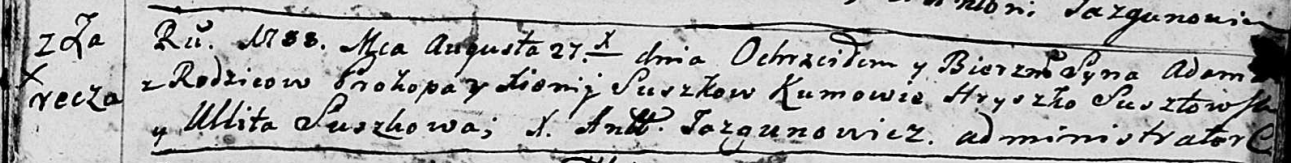 Jazgunowicz
z Za
rzecza
Ru. 1788. Mca Augusta 27. X dnia Ochrzciłem y Bierzmo Syna Adama
z Rodzicow Prokopa y Xieni Suszkow Kumowie Hryszko Suszko
y Ullita Suszkowa; X. Antt. Jazgunowicz. administrator C.